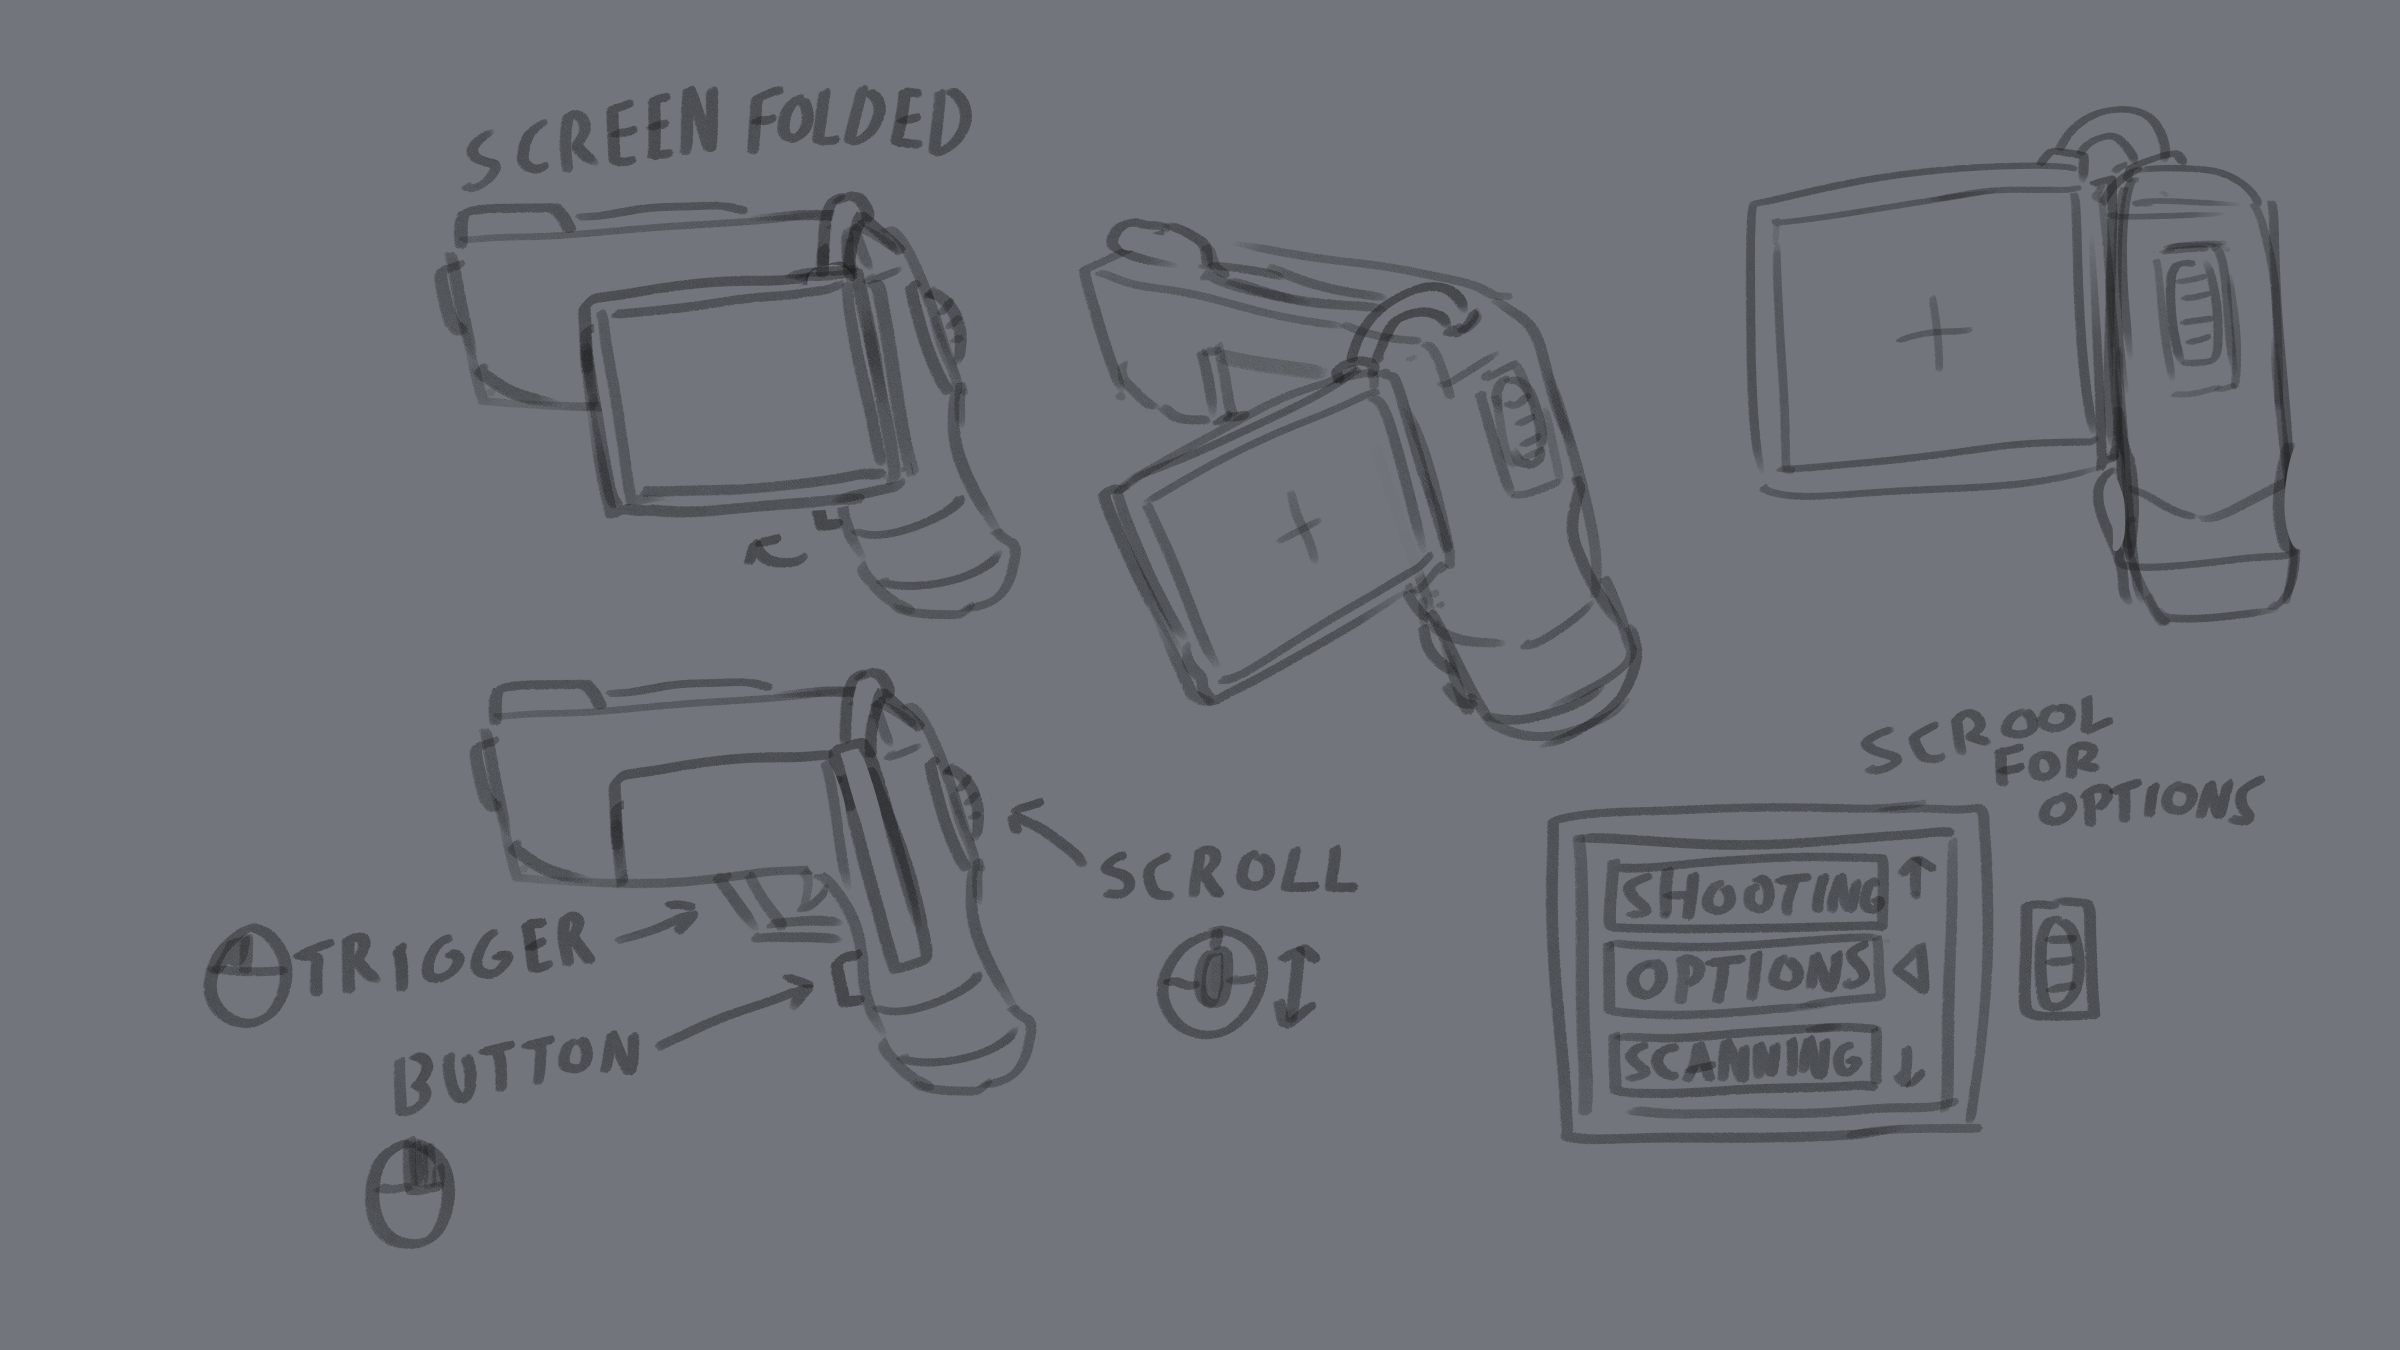 SCREEN FOLDED
TRIGGER
BUTTON
SCROLL
SCROOL
FOR
OPTIONS
SHOOTING
OPTIONS
SCANNING